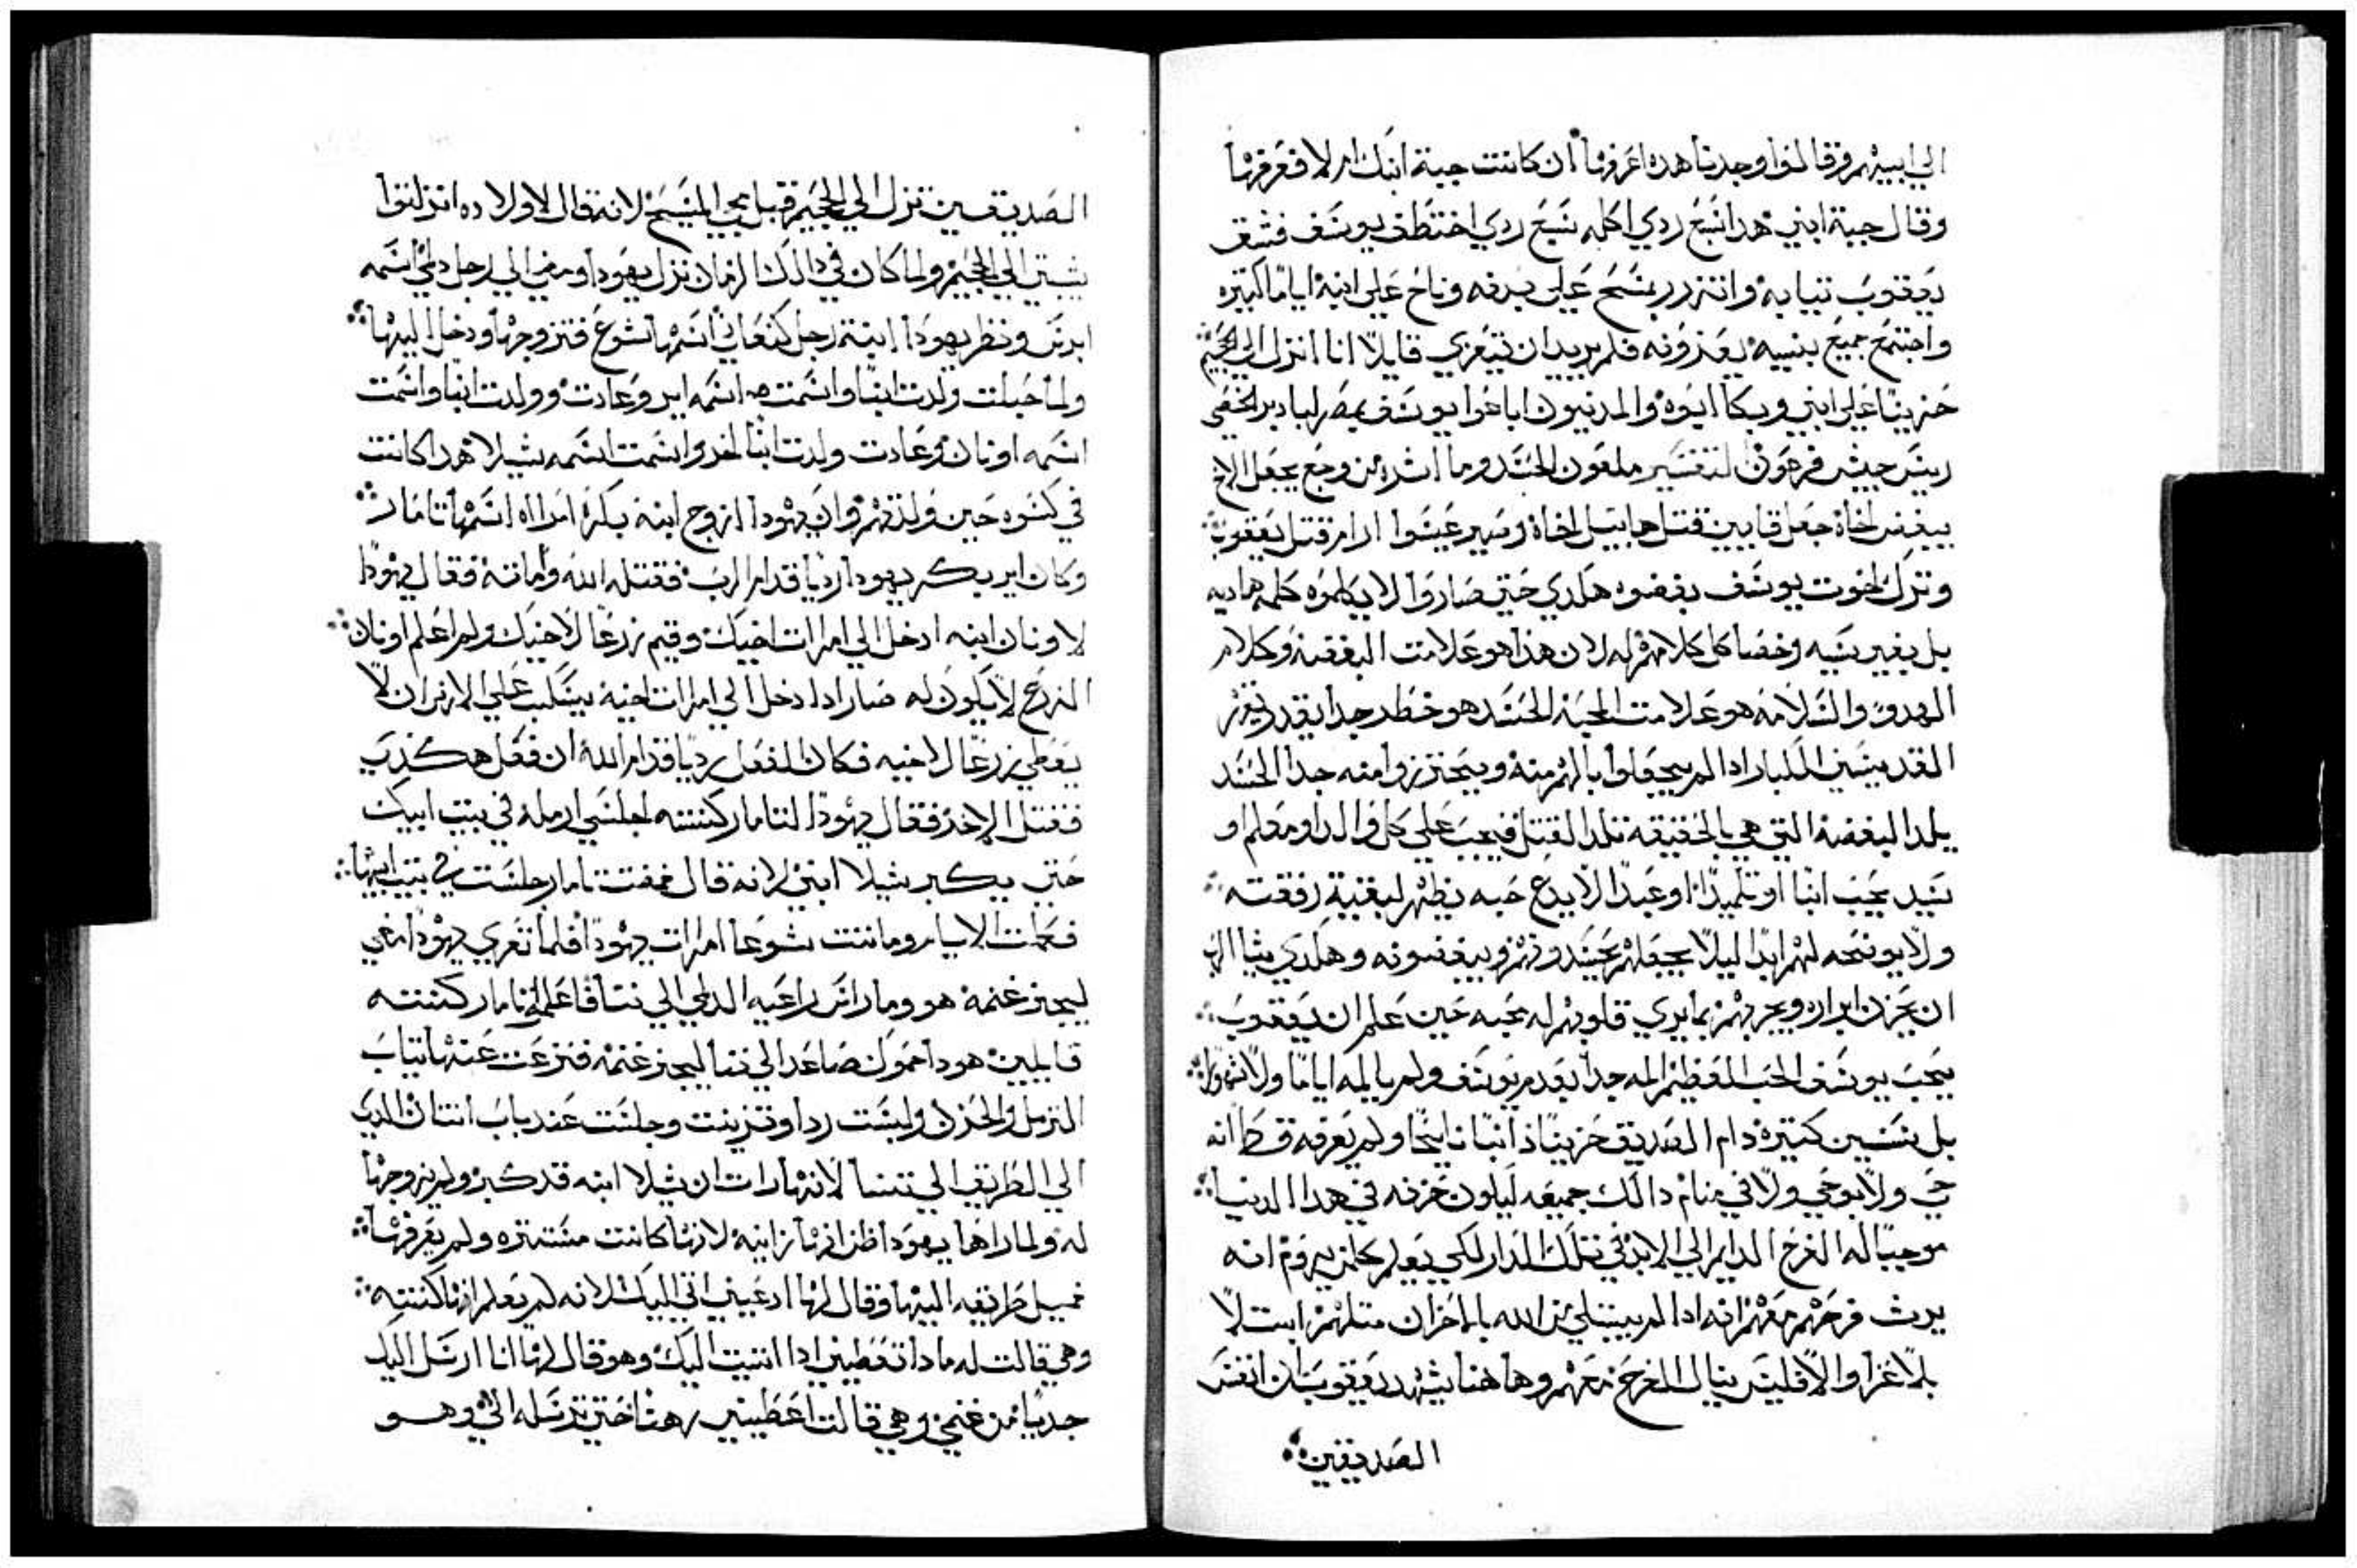 الي ابيهم وقالوا وجدنا هده اعرفها ان كانت جبة ابنك ام لا فعرفها
وقال جبة ابني هدا سَبع ردي اكله سَبع ردي اختطف يوسَف فشق
يعقوب تيابه واتزر بمسَح علي وناح علي ابنه اياما كتيره
واجتمع جميع بنيه يعزونه فلم يريد ان يتعزي قايلا انا انزل الي الجحيم
حزينا علي ابني وبكا ابوه والمدنيون اباعوا يوسَف بمصر الخصي
ريسَ جيش فرعون التفسَير ملعون الحسَد وما اشره من وجع يجعل الاخ
يبغض اخاه جعل قايين قتل هابيل اخاه وصير عيسَوا ارام قتل يعقوب
وترك اخوت يوسَف يبغضوه هكدي حتي صاروا لا يكلموه كلمه هاديه
بل بغير سَيه وخصا كل كلامهم له لان هذا هو علامت البغضه وكلام
الهدو والسَلامه هو علامت المحبه الحسَد هو خطر جدا يقدر يقهر
القديسَين الكبار ادا لم يجعلوا بالهم منه ويحترزوا منه جدا الحسَد
يلد البغضه التي هي بالحقيقه تلد القتل فيجب علي كل والد او معلم او
سَيد يحب ابنا او تلميدا او عبدا لا يدع حبه يظهر لبقية رفقته
ولا يوضحه لهم ابدا ليلا يجعلهم يحسَدونهم ويبغضونه وهكدي يشا الرب
ان يحزن ابراره ويجربهم بما يري قلوبهم له محبه حين علم ان يعقوب
يحب يوسَف الحب العظيم المه جدا بعدم يوسَف ولم يالمه اياما ولا شهورا
بل سَنين كتيره دام الصديق حزينا دايبا نايحا ولم يعرفه قط انه
حي ولا بوحي ولا في منام دالك جميعه ليكون حزنه في هدا الدنيا
موجبا له الفرح الدايم الي الابد في تلك الدار لكي يعلم كلمن يروم انه
يرت فرحهم معهم انه ادا لم يبتلي من الله بالاحزان متلهم
بلا عزا والا فليسَ ينال الفرح معهم وها هنا يشهد يعقوب بان انفسَ
الصديقين
الصديقين تنزل الي الجحيم قبل مجي المسَيح لانه قال لاولاده انزلتوا
شيبتي الي الجحيم ولما كان في دالك الزمان نزل يهودا ومضي الي رجل اسَمه
ايرسَ ونظر يهودا ابنت رجل كنعاني اسَمها شوع فتزوجها ودخل اليها
ولما حبلت ولدت ابنا واسَمت اسَمه اير وعادت وولدت ابنا واسَمت
اسَمه اونان وعادت ولدت ابنا اخر واسَمت اسَمه شيلا هدا كانت
في كسَوه حين ولدتهم وان يهودا ازوج ابنه بكره امراه اسَمها تامار
وكان اير بكر يهودا رديا قدام الرب فقتله الله وأماته فقال يهودا
لاونان ابنه ادخل الي امرات اخيك وقيم زرعا لاخيك ولم اعلم اونان
الزرع لا يكون له صار ادا دخل الي امرات اخيه يسَكب علي الارض ان لا
يعطي زرعا لاخيه فكان الفعل رديا قدام الله ان فعل هكدي
فقتل الاخر فقال يهودا لتامار كنته اجلسَي ارمله في بيت ابيك
حتي يكبر شيلا ابني لانه قال فمضت تامار جلسَت في بيت ابيها
فكملت الايام وماتت شوعا امرات يهودا فلما تعزي يهودا مضي
ليجز غنمه هو وماراسَ راعيه الدلمي الي تمنا فاعلموا تامار كنته
قايلين هودا حموك صاعد الي تمنا ليجز غنمه فنزعت عنها تياب
الترمل والحزن ولبسَت ردا وتزينت وجلسَت عند باب انتان الدي
الي الطريق الي تمنسا لانها رات ان شيلا ابنه قد كبر ولم يزوجها
له ولما راها يهودا ظن انها زانيه لانها كانت مسَتتره ولم يعرفها
فميل طريقه اليها وقال لها ادعيني اتي اليك لانه لم يعلم انها كنته
وهي قالت له مادا تعطيني ادا اتيت اليك وهو قال لها انا ارسَل اليك
جديا من غنمي وهي قالت اعطيني رهنا حتي ترسَله الي وهو